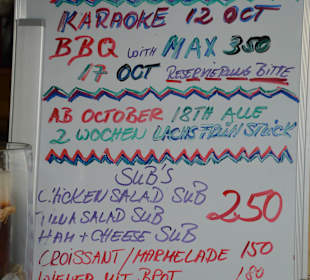 KARAOKE 12 OCT
BBQ WITH MAX 350
17 OCT RESERVIERUNG BITTE
AB OCTOBER 18TH ALLE
2 WOCHEN LACHSFRÜHSTÜCK
SUB'S
CHICKEN SALAD SUB
TUNA SALAD SUB 250
HAM + CHEESE SUB
CROISSANT/MARMELADE 150
WIENER MIT BROT 180